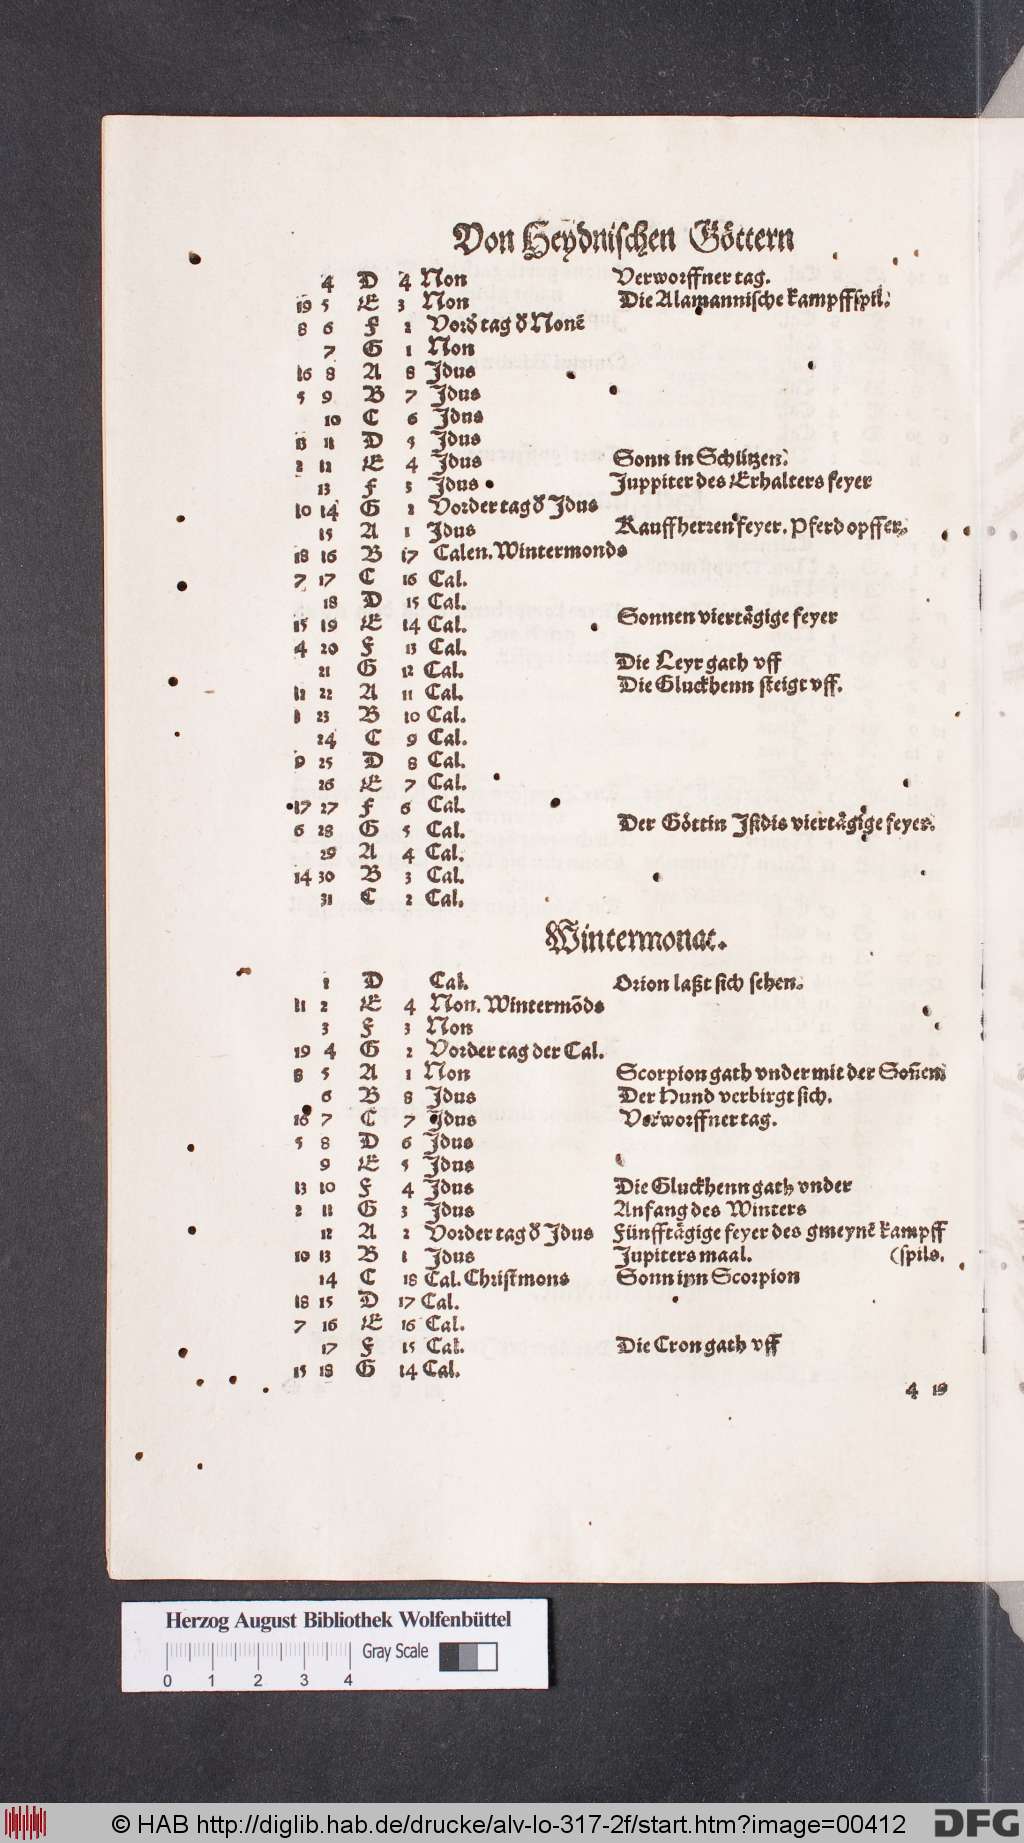 Von Heydnischen Göttern
4 D 4 Non Verworffner tag.
19 5 E 3 Non Die Alamannische kampffspil.
8 6 F 2 Vord̛ tag d̛ Nonē
7 G 1 Non
16 8 A 8 Idus
5 9 B 7 Idus
10 C 6 Idus
13 11 D 5 Idus
2 12 E 4 Idus Sonn in Schützen.
13 F 3 Idus Juppiter des Erhalters feyer
10 14 G 2 Vorder tag d̛ Idus
15 A 1 Idus Kauffherren feyer. Pferd opffer.
18 16 B 17 Calen. Wintermonds
7 17 C 16 Cal.
18 D 15 Cal.
15 19 E 14 Cal. Sonnen viertägige feyer
4 20 F 13 Cal.
21 G 12 Cal. Die Leyr gath vff
12 22 A 11 Cal. Die Gluckhenn steigt vff.
1 23 B 10 Cal.
24 C 9 Cal.
9 25 D 8 Cal.
26 E 7 Cal.
17 27 F 6 Cal.
6 28 G 5 Cal. Der Göttin Isidis viertägige feyer.
29 A 4 Cal.
14 30 B 3 Cal.
31 C 2 Cal.
Wintermonat.
1 D Cal. Orion laßt sich sehen.
11 2 E 4 Non. Wintermōds
3 F 3 Non
19 4 G 2 Vorder tag der Cal.
8 5 A 1 Non Scorpion gath vnder mit der Soñen
6 B 8 Idus Der Hund verbirgt sich.
16 7 C 7 Idus Verworffner tag.
5 8 D 6 Idus
9 E 5 Idus
13 10 F 4 Idus Die Gluckhenn gath vnder
2 11 G 3 Idus Anfang des Winters
12 A 2 Vorder tag d̛ Idus Fünfftägige feyer des gmeynē kampff
10 13 B 1 Idus Jupiters maal. (spils.
14 C 18 Cal. Christmons Sonn inn Scorpion
18 15 D 17 Cal.
7 16 E 16 Cal.
17 F 15 Cal. Die Cron gath vff
15 18 G 14 Cal.
4 19
Herzog August Bibliothek Wolfenbüttel
Gray Scale
0 1 2 3 4
© HAB http://diglib.hab.de/drucke/alv-lo-317-2f/start.htm?image=00412
DFG